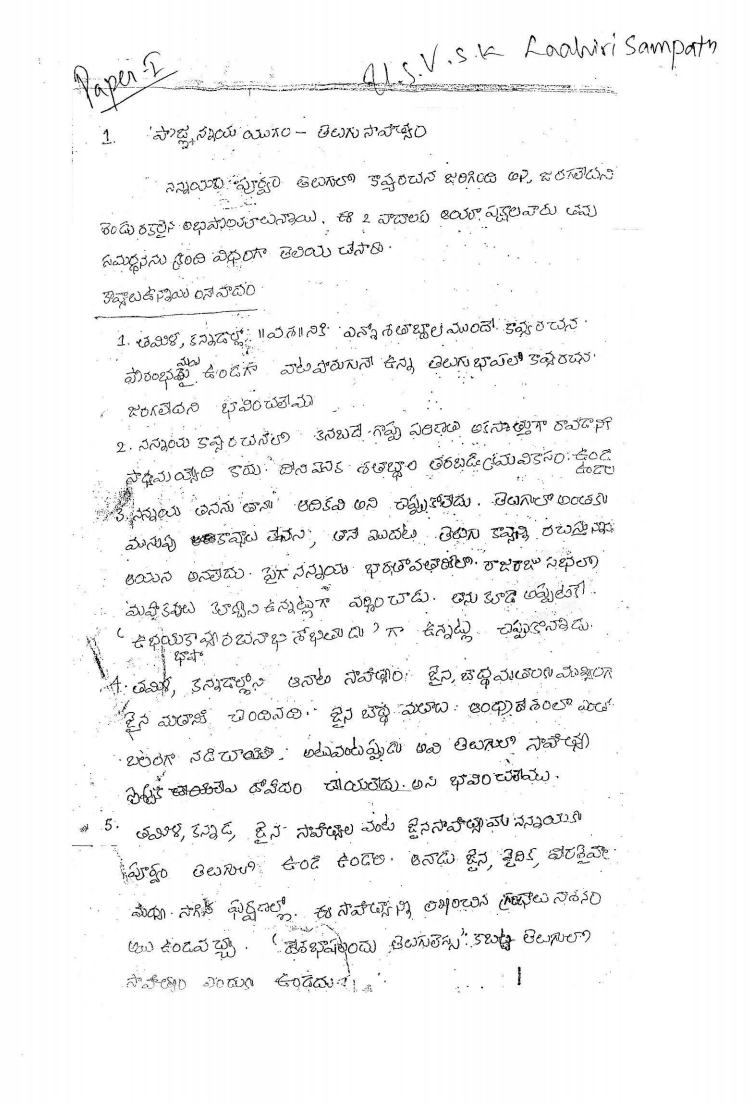 Paper-I
U.S.V.S.K Laahiri Sampath
1. ప్రాఙ్నన్నయ యుగం - తెలుగు సాహిత్యం
నన్నయకు పూర్వం తెలుగులో కావ్యరచన జరిగింది అని, జరగలేదని
రెండు రకాలైన అభిప్రాయాలున్నాయి. ఈ 2 వాదాలపై ఆయా పక్షాలవారు తమ
సమర్థనను క్రింది విధంగా తెలియ చేసారు.
కావ్యాలు ఉన్నాయి అనే వాదం
1. తమిళ, కన్నడాల్లో ఎన్నో శతాబ్దాల ముందే కావ్యరచన
ప్రారంభమై ఉండగా వాటి పొరుగునే ఉన్న తెలుగు భాషలో కావ్యరచన
జరగలేదని భావించలేము
2. నన్నయ కావ్యరచనలో కనబడే గొప్ప పరిణతి అకస్మాత్తుగా రావడానికి
సాధ్యమయ్యేది కాదు. దాని వెనుక శతాబ్దాల తరబడి క్రమవికాసం ఉండి
ఉండాలి
3. నన్నయ తనను తాను ఆదికవి అని చెప్పుకోలేదు. తెలుగులో అంతకు
మునుపు కావ్యాలు లేవని, తానే మొదట తెలుగు కావ్యాన్ని రచిస్తున్నానని
ఆయన అనలేదు. పైగా నన్నయ భారతావతారికలో రాజరాజు సభలో
మహాకవులు కూర్చొని ఉన్నట్లుగా వర్ణించాడు. తను కూడా అప్పటికే
'ఉభయభాషా కావ్యరచనాభిశోభితుడు' గా ఉన్నట్లు చెప్పుకొన్నాడు.
4. తమిళ, కన్నడాల్లోని ఆనాటి సాహిత్యం జైన, బౌద్ధ మతాలకు ముఖ్యంగా
జైన మతానికి చెందినది. జైన బౌద్ధ మతాలు ఆంధ్రదేశంలో ఎంతో
బలంగా నడిచాయి. అటువంటప్పుడు అవి తెలుగులో సాహిత్య
దోహదం చేయలేదు. అని భావించలేము.
5. తమిళ, కన్నడ, జైన సాహిత్యాల వంటి జైనసాహిత్యము నన్నయకు
పూర్వం తెలుగులో ఉండి ఉండాలి. ఆనాడు జైన, వైదిక, వీరశైవాల
మధ్య సాగిన ఘర్షణల్లో ఈ సాహిత్యాన్ని లిఖించిన గ్రంథాలు నాశనం
అయి ఉండవచ్చు. "దేశభాషలందు తెలుగులెస్స" కాబట్టి తెలుగులో
సాహిత్యం ఎందుకు ఉండదు?
1